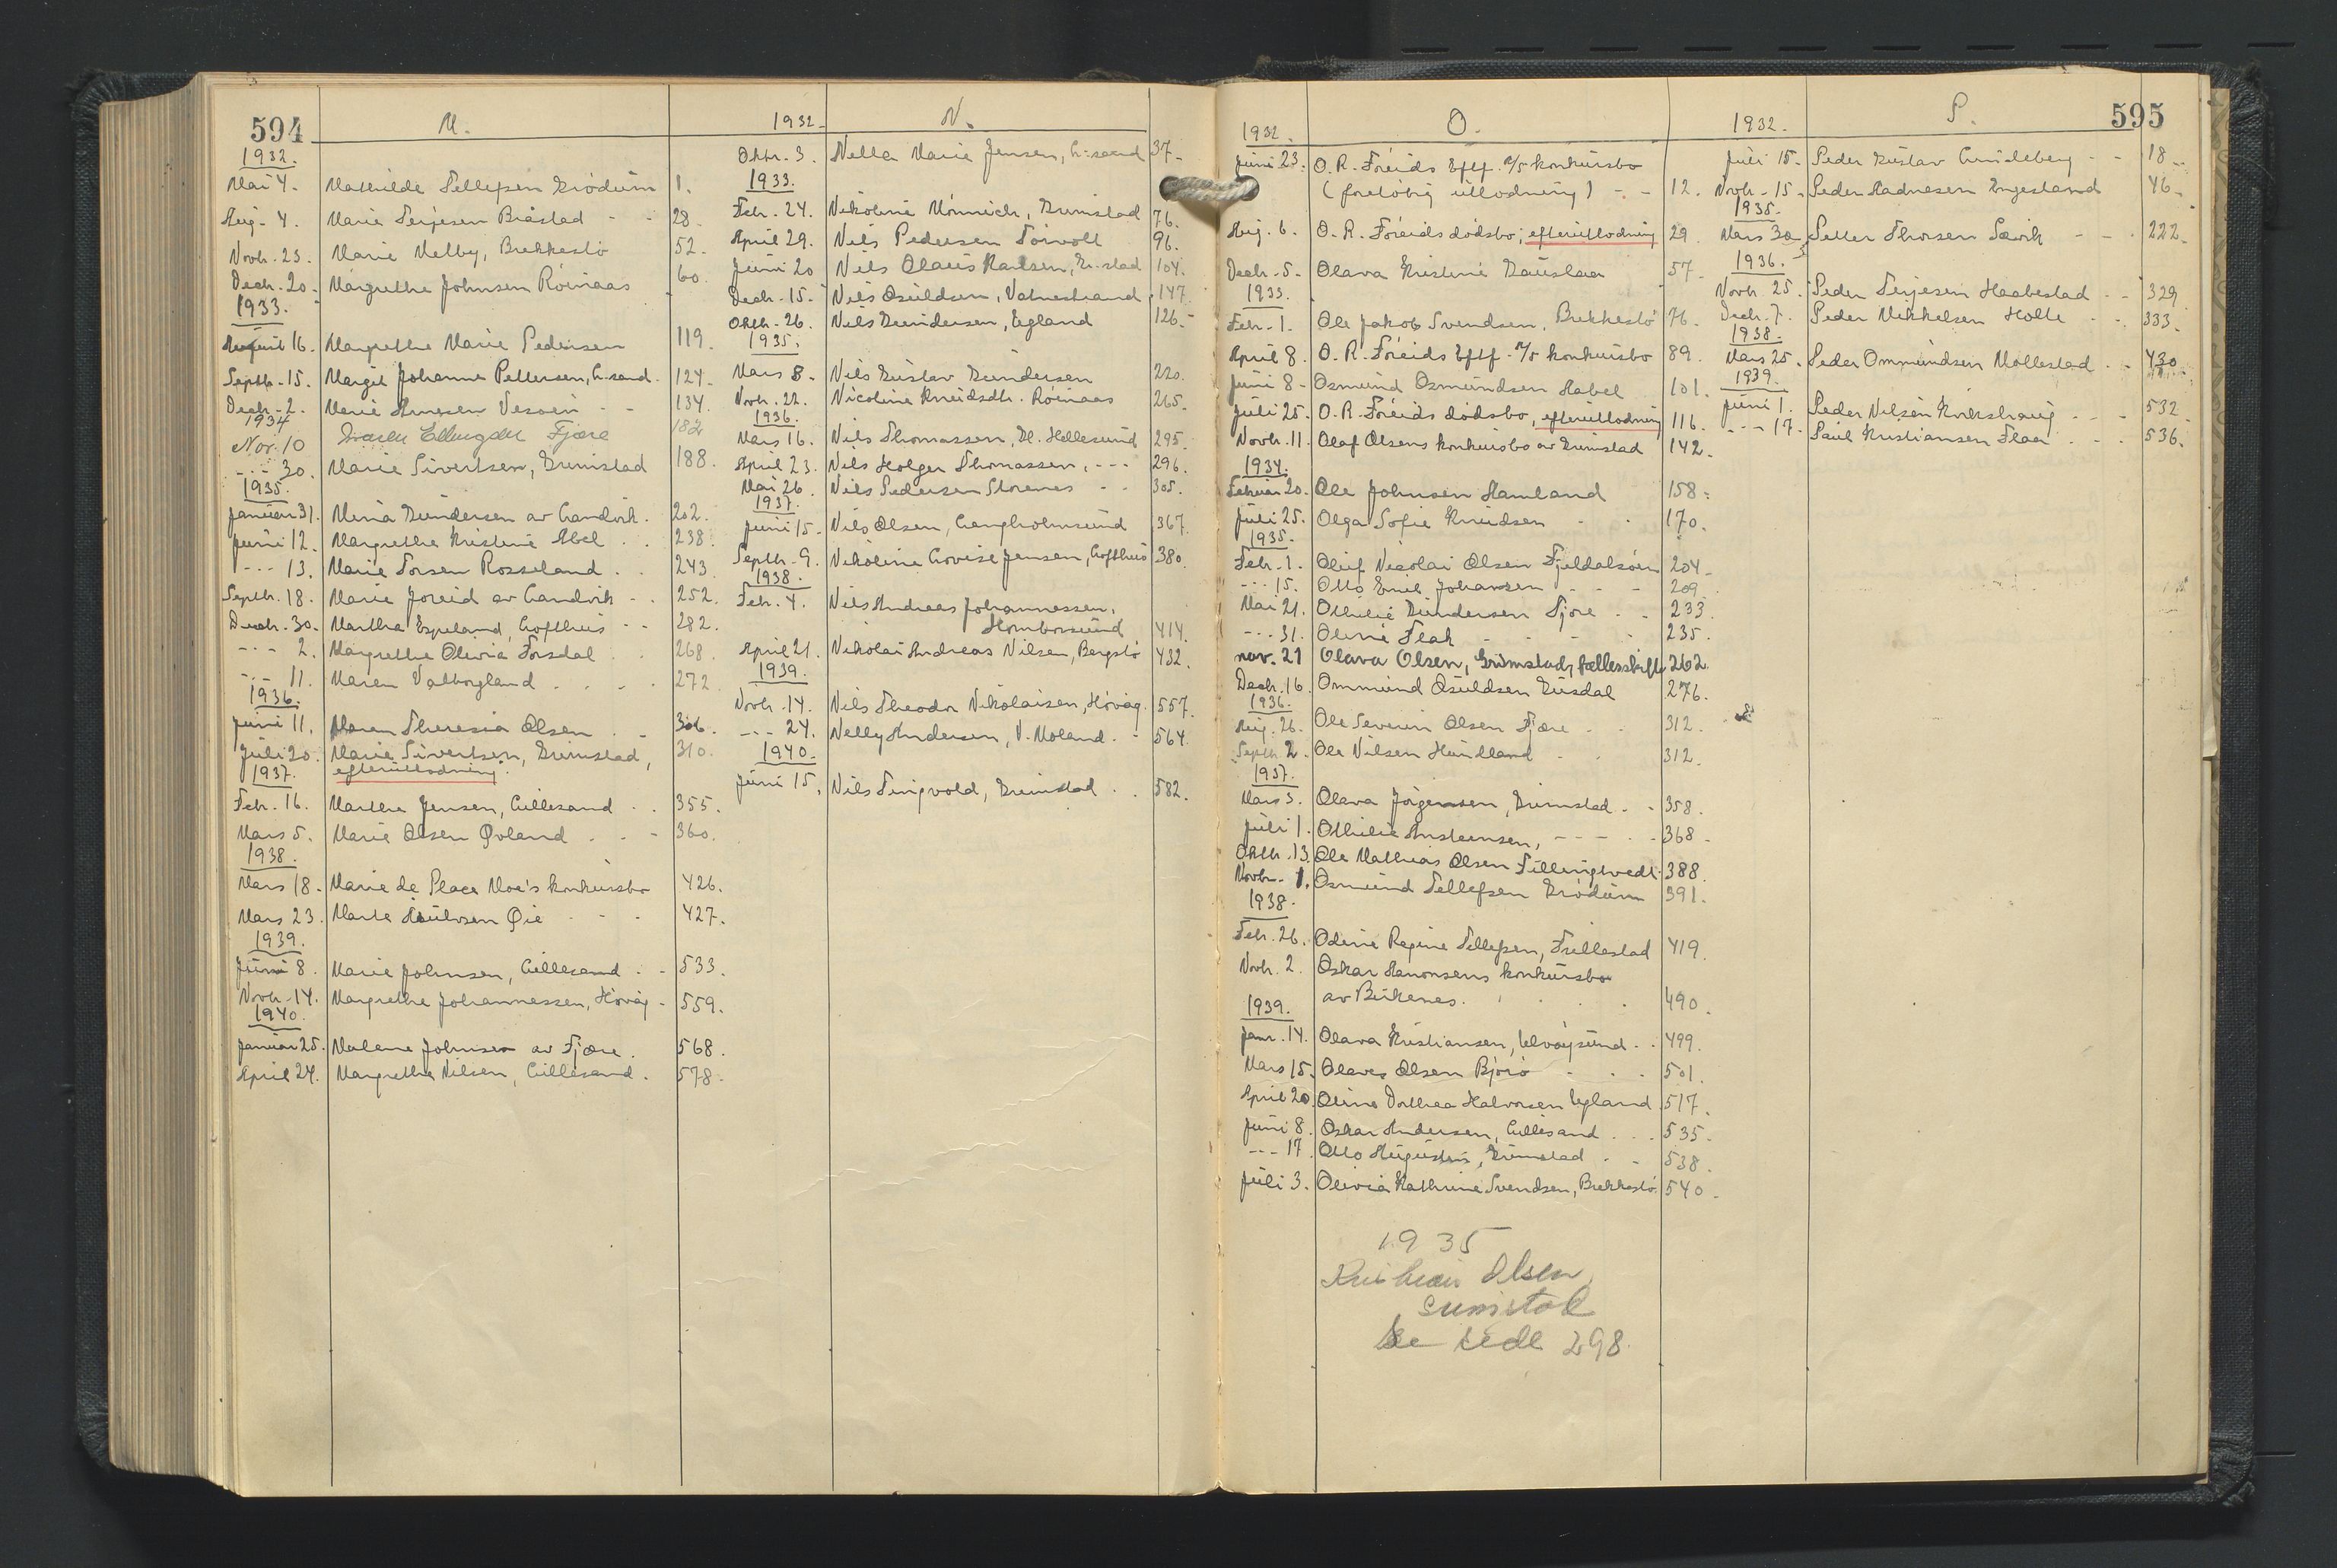 594
M.
1932.
Mai 4. Mathilde Tellefsen Grödum 1.
Aug. 4. Marie Terjesen Bråstad 28.
Novb. 23. Marie Melby, Brekkestö 52.
Decb. 20. Margrethe Johnsen Röinaas 60.
1933.
August 16. Margrethe Marie Pedersen 119.
Septb. 15. Margit Johanne Pettersen, L.sand. 124.
Decb. 2. Marie Arnesen Vesöen 134.
1934
Nov. 10 Ellingsen Fjære 182
- - - 30. Marie Sivertsen, Grimstad 188.
1935.
Januar 31. Mina Gundersen av Landvik. 202.
Juni 12. Margrethe Kristine Abel 238.
- - - 13. Marie Torsen Rosseland 243.
Septb. 18. Marie Joreid av Landvik 252.
Decb. 30. Martha Espeland, Lofthus 282.
- - - 2. Margrethe Olevia Forsdal 268.
- - - 11. Maren Valborgland 272.
1936.
Juni 11. Maren Theresia Olsen 306.
Juli 20. Marie Sivertsen, Grimstad, 310.
efterutlodning.
1937.
Feb. 16. Marthe Jensen, Lillesand 355.
Mars 5. Marie Olsen Øvland 360.
1938.
Mars 18. Marie de Place Moe's konkursbo 426.
Mars 23. Marte Øie 427.
1939.
Juni 8. Marie Johnsen, Lillesand 533.
Novb. 14. Margrethe Johannessen, Hövåg 559.
1940.
Januar 25. Malene Johnsen av Fjære. 568.
April 24. Margrethe Nilsen, Lillesand. 578.
1932. N.
Oktbr. 3. Nella Marie Jensen, L.sand 37.
1933.
Feb. 24. Nikoline Mönnich, Grimstad 76.
April 29. Nils Pedersen Törvolt 96.
Juni 20 Nils Olaus Karlsen, Gr.stad 104.
Decb. 15. Nils Osuldsen, Vatnestrand 147.
Oktb. 26. Nils Gundersen, Egland 126.
1935.
Mars 8. Nils Gustav Gundersen 220.
Novb. 22. Nicoline Knudsdtr. Röinaas 265.
1936.
Mars 16. Nils Thomassen, Ul. Hellesund 295.
April 23. Nils Holger Thomassen, - - - 296.
Mai 26. Nils Pedersen Storenes 305.
1937.
Juni 15. Nils Olsen, Langholmsund 367.
Septb. 9. Nikoline Lovise Jensen, Lofthus 380.
1938.
Feb. 4. Nils Andreas Johannessen,
Homborsund 414.
April 21. Nikolai Andreas Nilsen, Bergstö 432.
1939.
Novb. 14. Nils Theodor Nikolaisen, Hövåg. 557.
- - - 24. Nelly Andersen, V. Moland. 564.
1940.
Juni 15. Nils Tingvold, Grimstad 582.
595
1932. O.
Juni 23. O. R. Foreids Eftf. A/S konkursbo
(foreløbig utlodning) 12.
Aug. 6. O. R. Foreids dødsbo, efterutlodning 29.
Decb. 5. Olava Kristine Dauslaa 57.
1933.
Feb. 1. Ole Jakob Svendsen, Brekkestö 76.
April 8. O. R. Foreids Eftf. A/S konkursbo 89.
Juni 8. Osmund Osmundsen Habel 101.
Juli 25. O. R. Foreids dødsbo, efterutlodning 116.
Novb. 11. Olaf Olsens konkursbo av Grimstad 142.
1934.
Februar 20. Ole Johnsen Hamland 158.
Juli 25. Olga Sofie Knudsen 170.
1935.
Feb. 1. Oluf Nicolai Olsen Fjeldalsöen 204.
- - - 15. Otto Emil Johansen 209.
Mai 21. Othilie Gundersen Fjære 233.
- - - 31. Oline Flak 235.
nov. 21 Olava Olsen, Grimstad, fællesskifte 262.
Decb. 16. Ommund Osuldsen Gusdal 276.
1936.
Aug. 26. Ole Severin Olsen Fjære 312.
Septb. 2. Ole Nilsen Hundland 312.
1937.
Mars 3. Olava Jörgensen, Grimstad 358.
Juli 1. Othilie Austensen, - - - 368.
Oktb. 13. Ole Mathias Olsen Fillingtvedt 388.
Novb. 1. Osmund Tellefsen Grödum 391.
1938.
Feb. 26. Odine Regine Tellefsen, Trællestad 419.
Novb. 2. Oskar Hanonsens konkursbo
av Birkenes. 490.
1939.
Janr. 14. Olava Kristiansen, Ulvöysund 499.
Mars 15. Olaves Olsen Björö 501.
April 20. Oline Dorthea Halvorsen Egland 517.
Juni 8. Oskar Andersen, Lillesand 535.
- - - 17. Otto Augustus, Grimstad 538.
Juli 3. Olivia Kathrine Svendsen, Brekkestö 540.
1935
Olsen
Se side 298.
1932. P.
Juli 15. Peder Gustav Lindeberg 18.
Novb. 15. Peder Madnesen Ingestand 46.
1935.
Mars 30. Petter Thorsen Sævik 222.
1936.
Novb. 25. Peder Terjesen Haabestad 329.
Decb. 7. Peder Mikkelsen Holte 333.
1938.
Mars 25. Peder Ommundsen Mollestad 430.
1939.
Juni 1. Peder Nilsen Kvikshaug 532.
- - - 17. Paul Kristiansen Flaa 536.